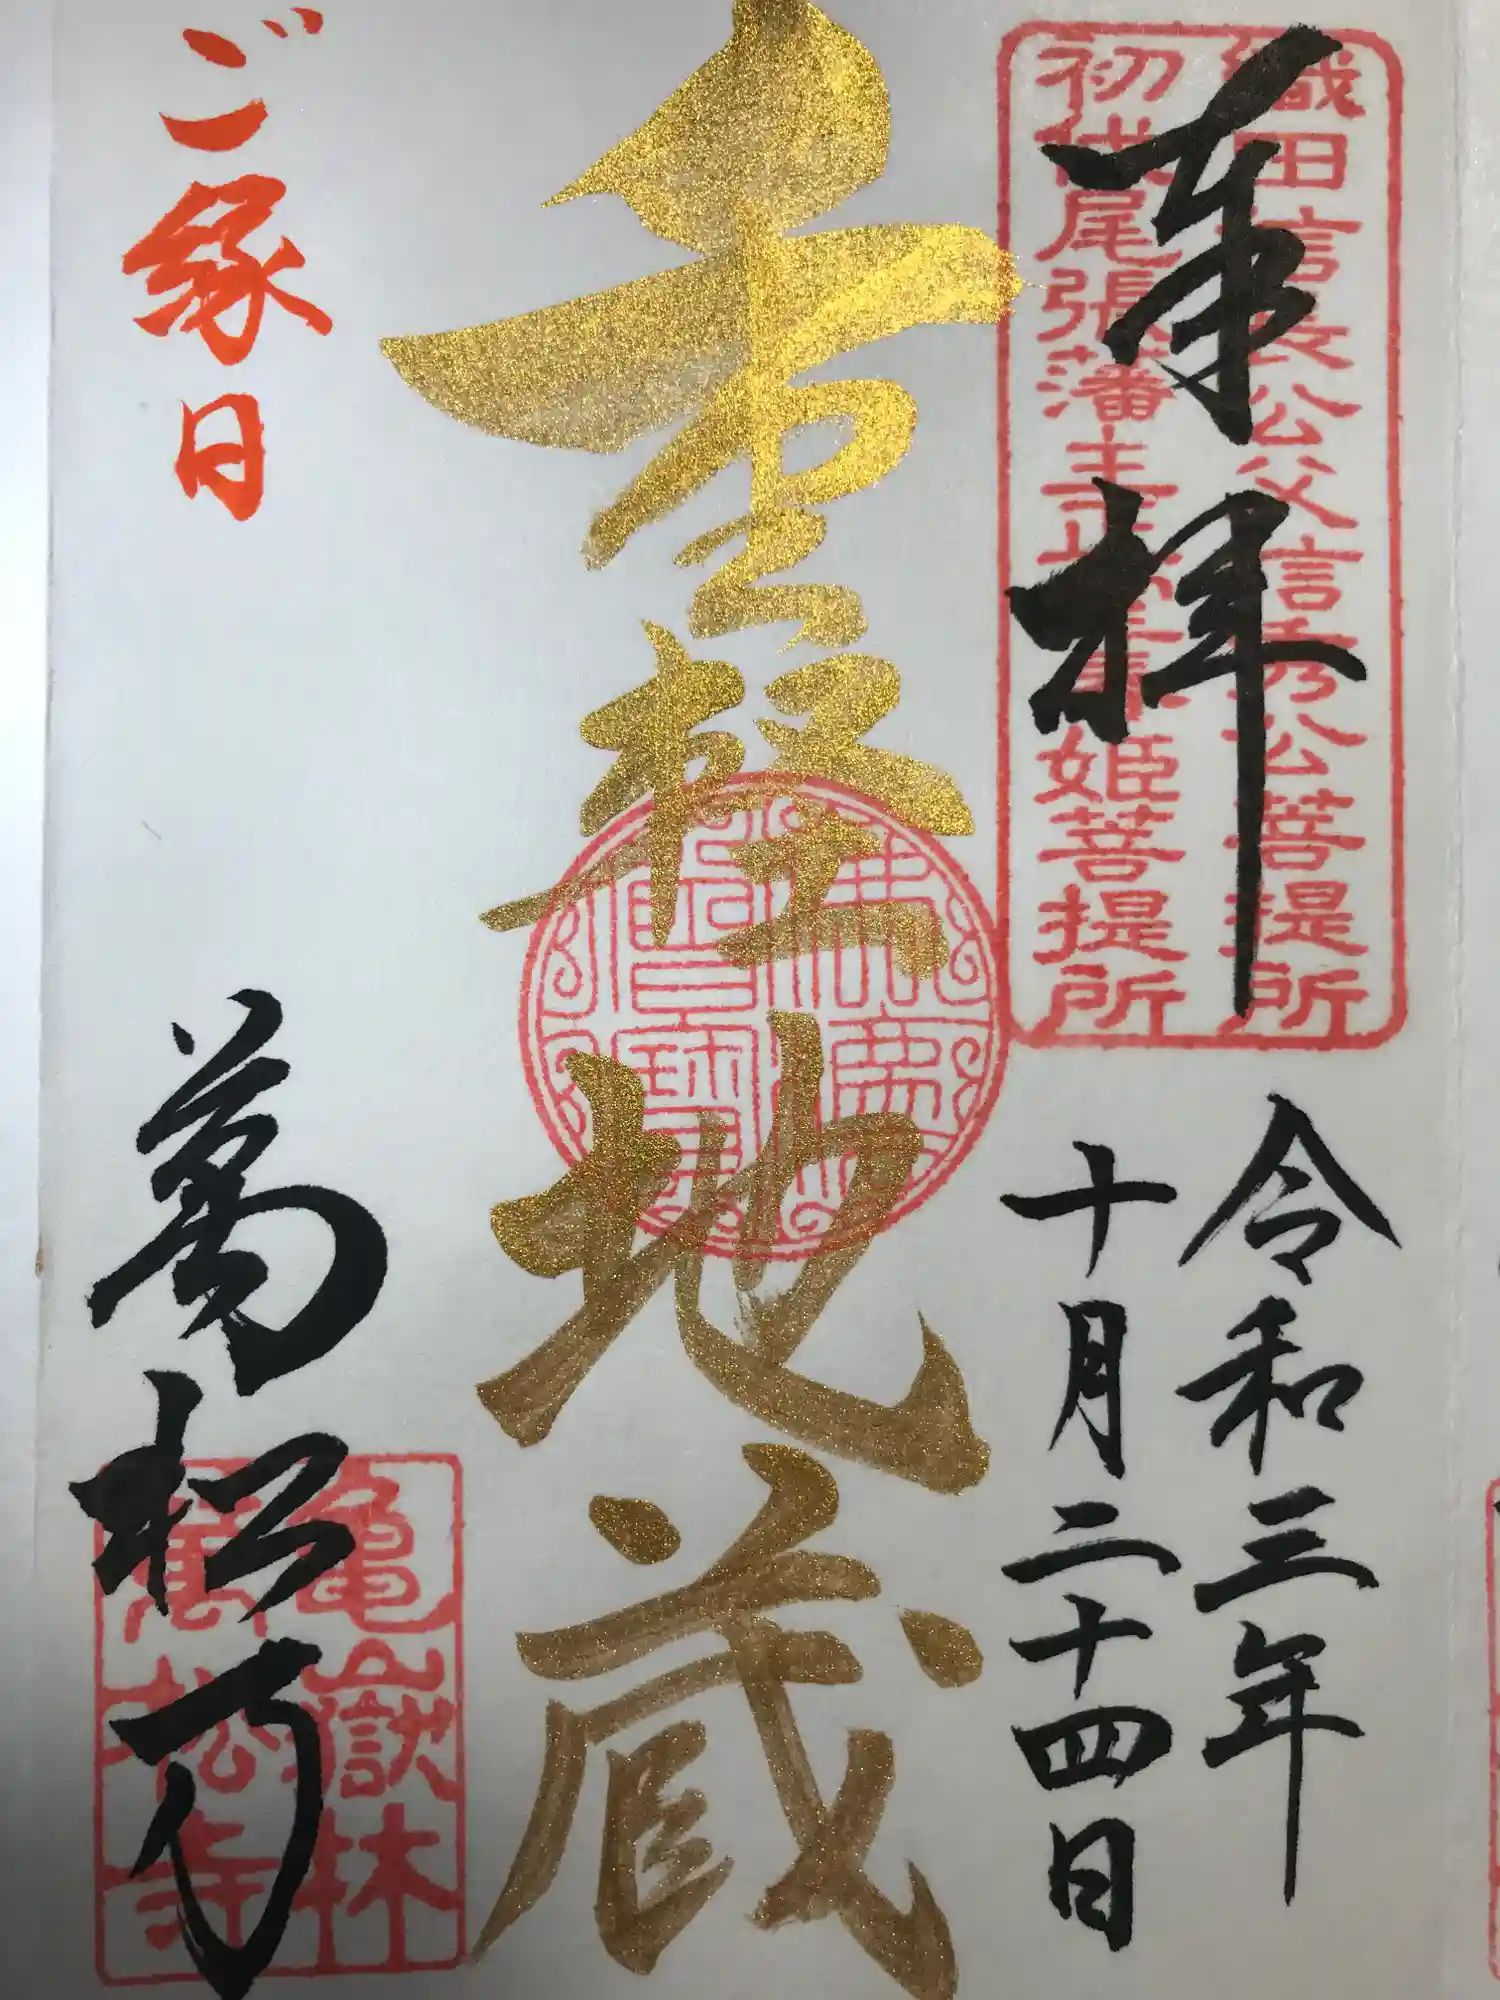 奉拝
織田信長公父信秀公菩提所
初代尾張藩主正室春姫菩提所
令和三年
十月二十四日
重軽地蔵
佛法僧寶
ご縁日
萬松寺
亀嶽林
萬松寺